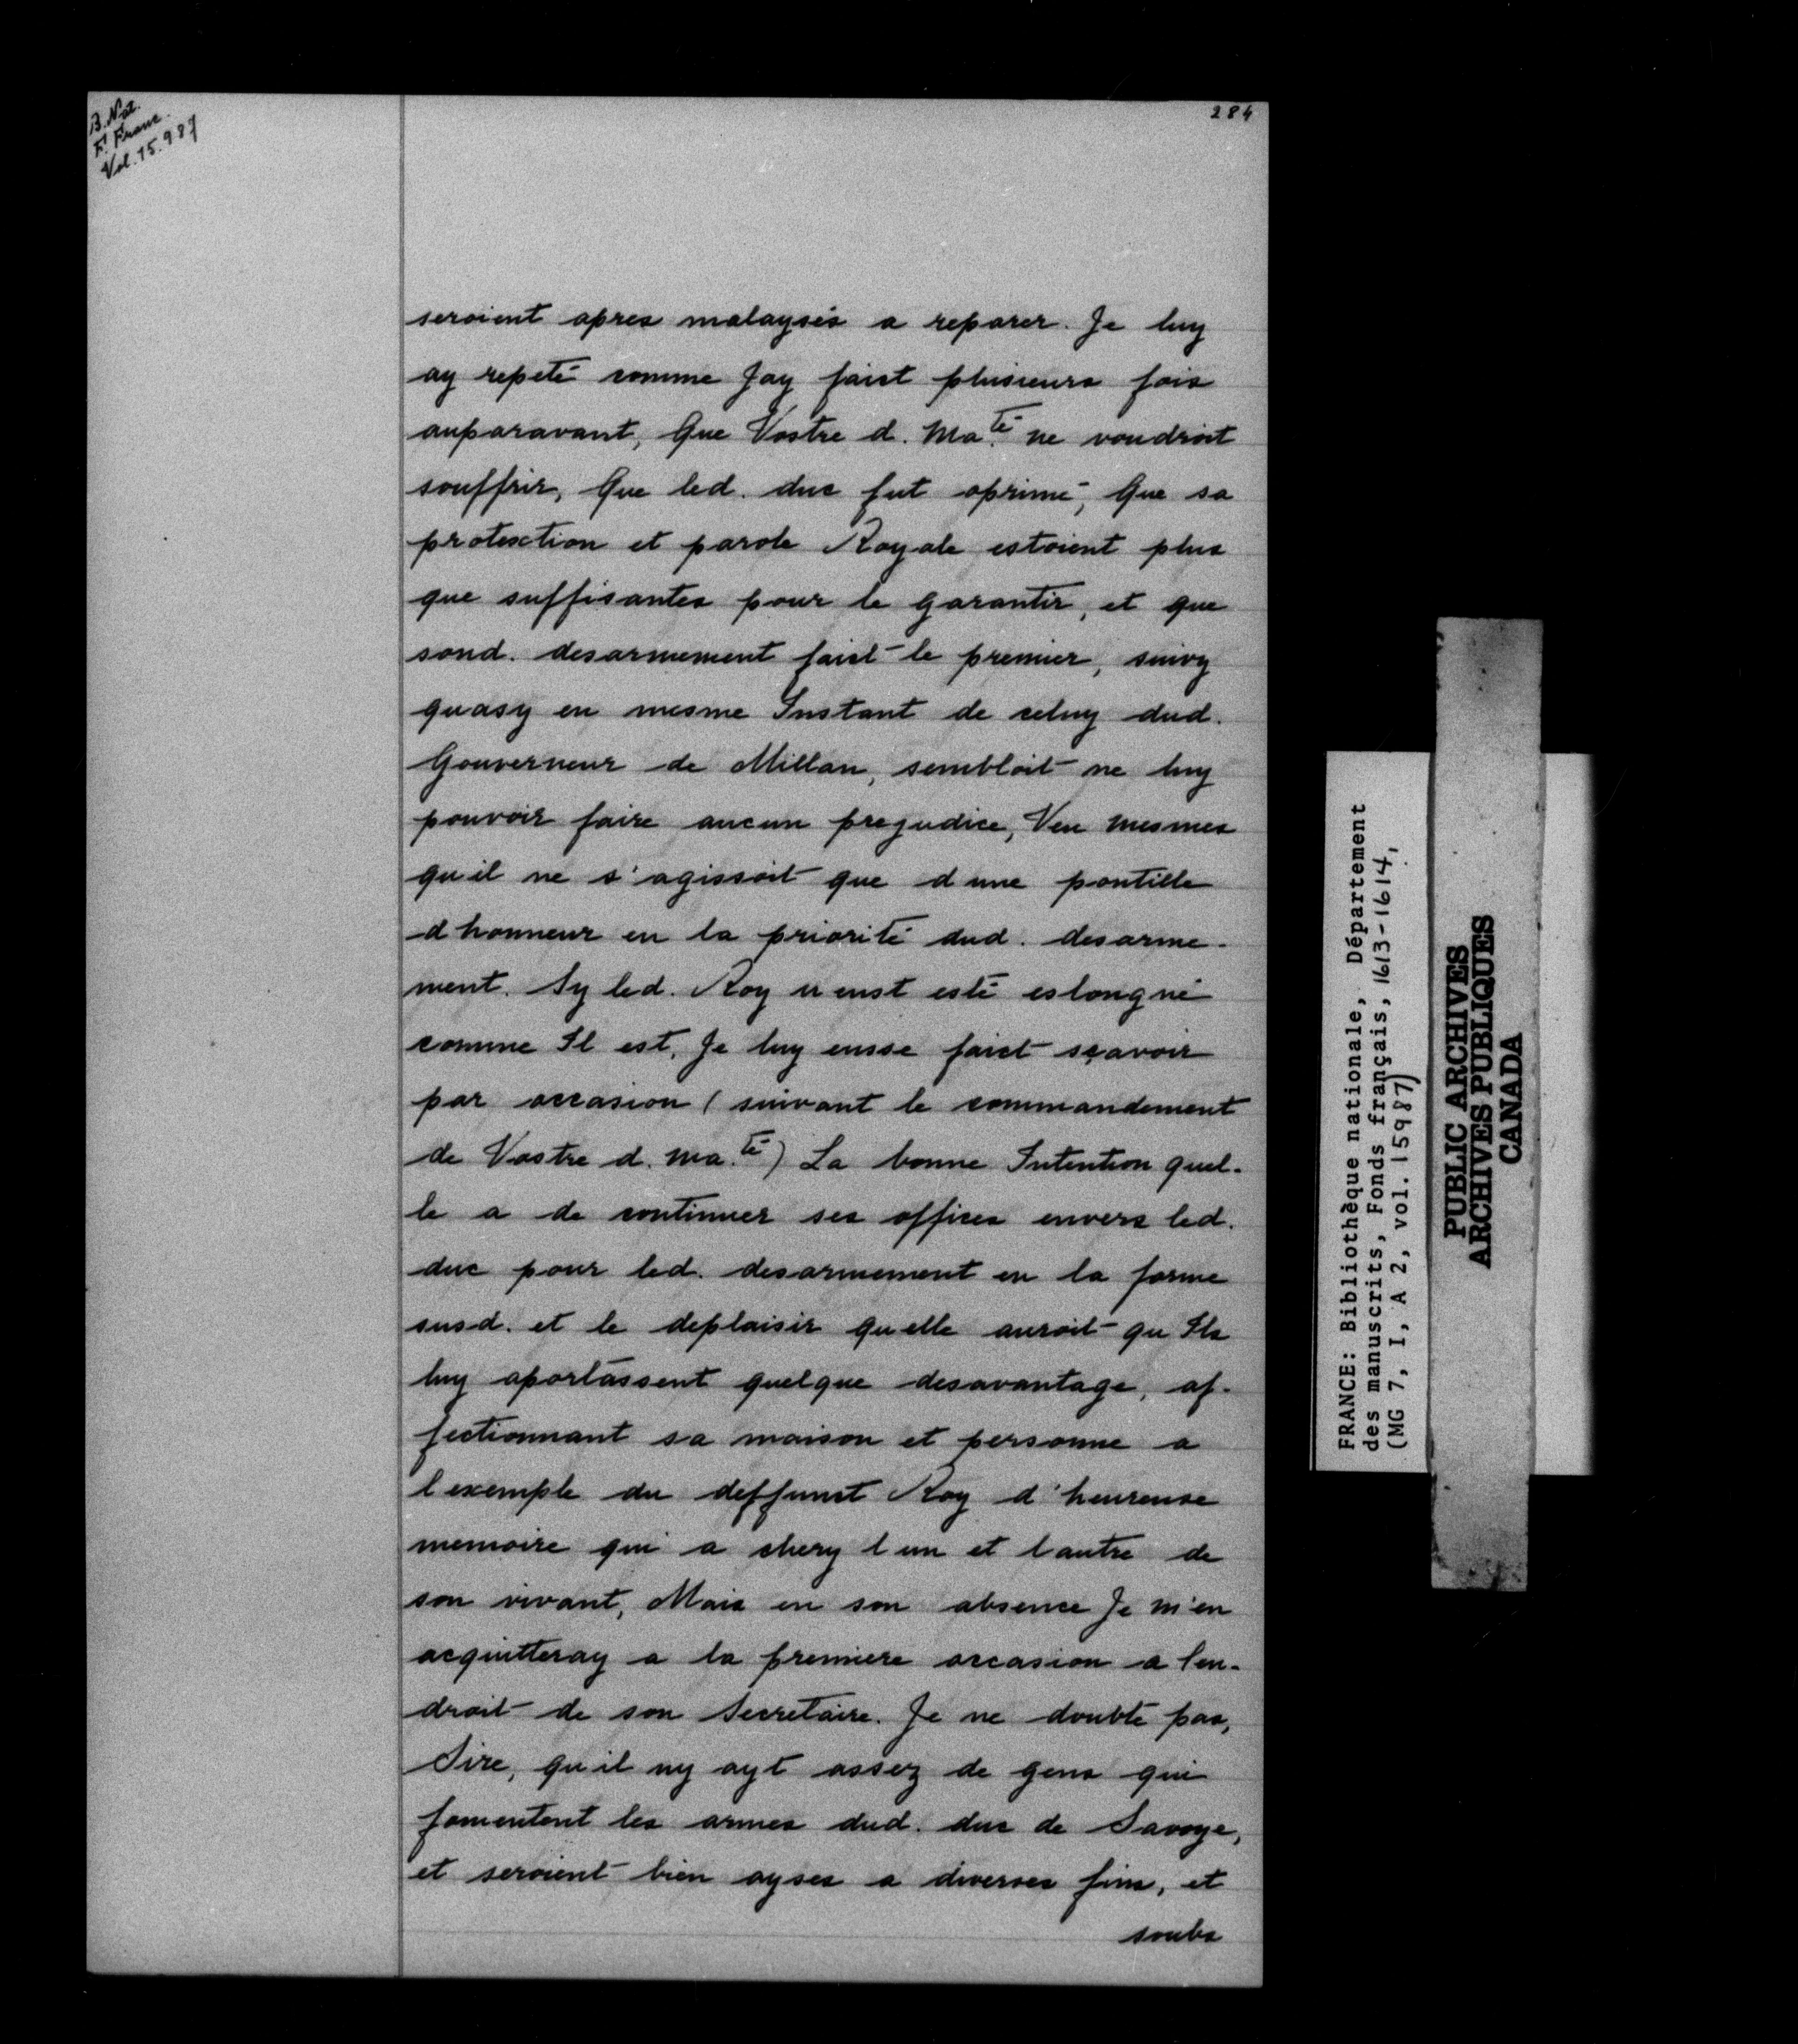 B. Nat.
F! Franc.
Vol. 15.987
284
seroient apres malaysés a reparer. Je luy
ay repeté comme Jay faict plusieurs fois
auparavant, Que Vostre d. Ma.té ne voudroit
souffrir, Que led. duc fut oprimé, Que sa
protection et parole Royale estoient plus
que suffisantes pour le garantir, et que
sond. desarmement faict le premier, suivy
quasy en mesme Instant de celuy dud.
Gouverneur de Millan, sembloit ne luy
pouvoir faire aucun prejudice, Veu mesmes
qu il ne s'agissoit que d une pontille
d honneur en la priorité dud. desarme-
ment. Sy led. Roy n eust esté eslongné
comme Il est, Je luy eusse faict sçavoir
par occasion (suivant le commandement
de Vostre d. Ma.té) La bonne Intention quel-
le a de continuer ses offices envers led.
duc pour led. desarmement en la forme
susd. et le deplaisir qu elle auroit qu Ils
luy aportassent quelque desavantage, af-
fectionnant sa maison et personne a
l exemple du deffunct Roy d'heureuse
memoire qui a chery l un et l autre de
son vivant, Mais en son absence Je m'en
acquitteray a la premiere occasion a len-
droit de son Secretaire. Je ne doubte pas,
Sire, qu il ny ayt assez de gens qui
fomentent les armes dud. duc de Savoye,
et seroient bien ayses a diverses fins, et
soubs
FRANCE: Bibliothèque nationale, Département
des manuscrits, Fonds français, 1613-1614,
(MG 7, I, A 2, vol. 15987)
PUBLIC ARCHIVES
ARCHIVES PUBLIQUES
CANADA